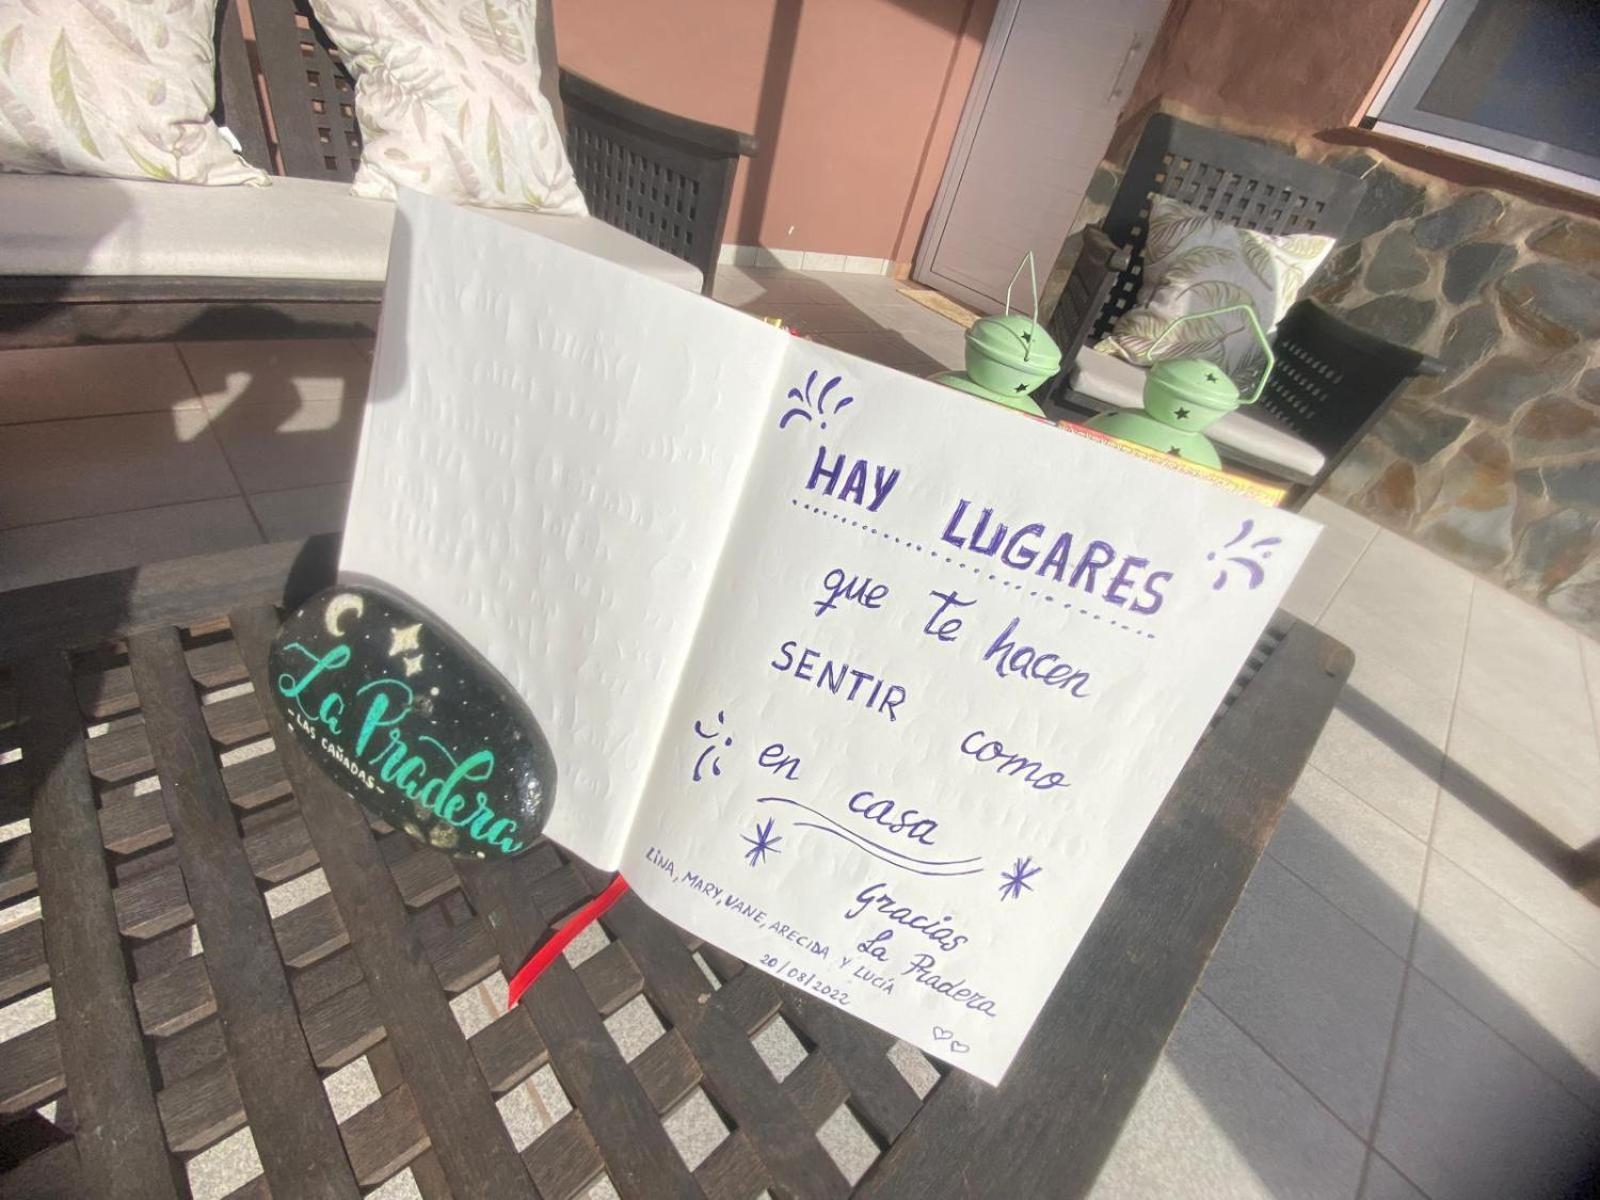 La Pradera
- LAS CAÑADAS -
HAY LUGARES
que te hacen
SENTIR como
en casa
Gracias
La Pradera
LINA, MARY, VANE, ARECIDA Y LUCÍA
20/08/2022